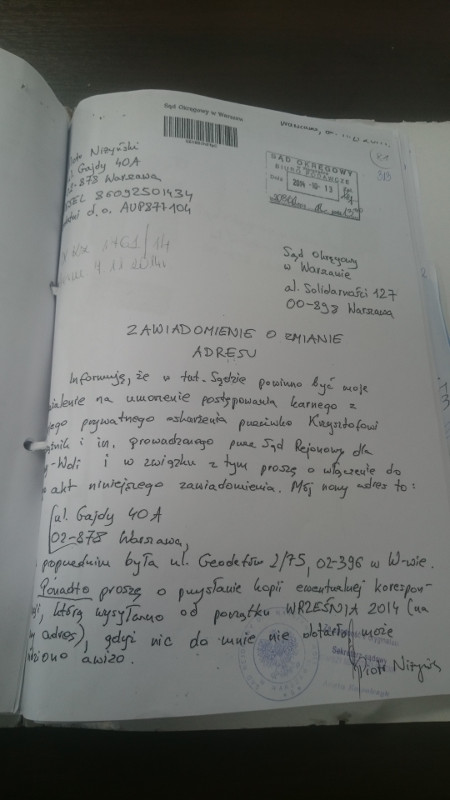 Sąd Okręgowy w Warszawie
Piotr Niżyński
ul. Gajdy 40A
02-878 Warszawa
PESEL 86092501434
d. o. AUP877104
SĄD OKRĘGOWY
BIURO PODAWCZE
2014 -10- 13
Sąd Okręgowy
w Warszawie
al. Solidarności 127
00-898 Warszawa
ZAWIADOMIENIE O ZMIANIE
ADRESU
Informuję, że w tut. Sądzie powinno być moje
zażalenie na umorzenie postępowania karnego z
mojego prywatnego oskarżenia przeciwko Krzysztofowi
i in. prowadzonego przez Sąd Rejonowy dla
W-Woli i w związku z tym proszę o włączenie do
akt niniejszego zawiadomienia. Mój nowy adres to:
ul. Gajdy 40A
02-878 Warszawa,
poprzednim była ul. Geodetów 2/75, 02-396 w W-wie.
Ponadto proszę o przysłanie kopii ewentualnej korespon-
dencji, którą wysyłano od początku WRZEŚNIA 2014 (na
adres), gdyż nic do mnie nie dotarło, może
awizo.
Piotr Niżyński